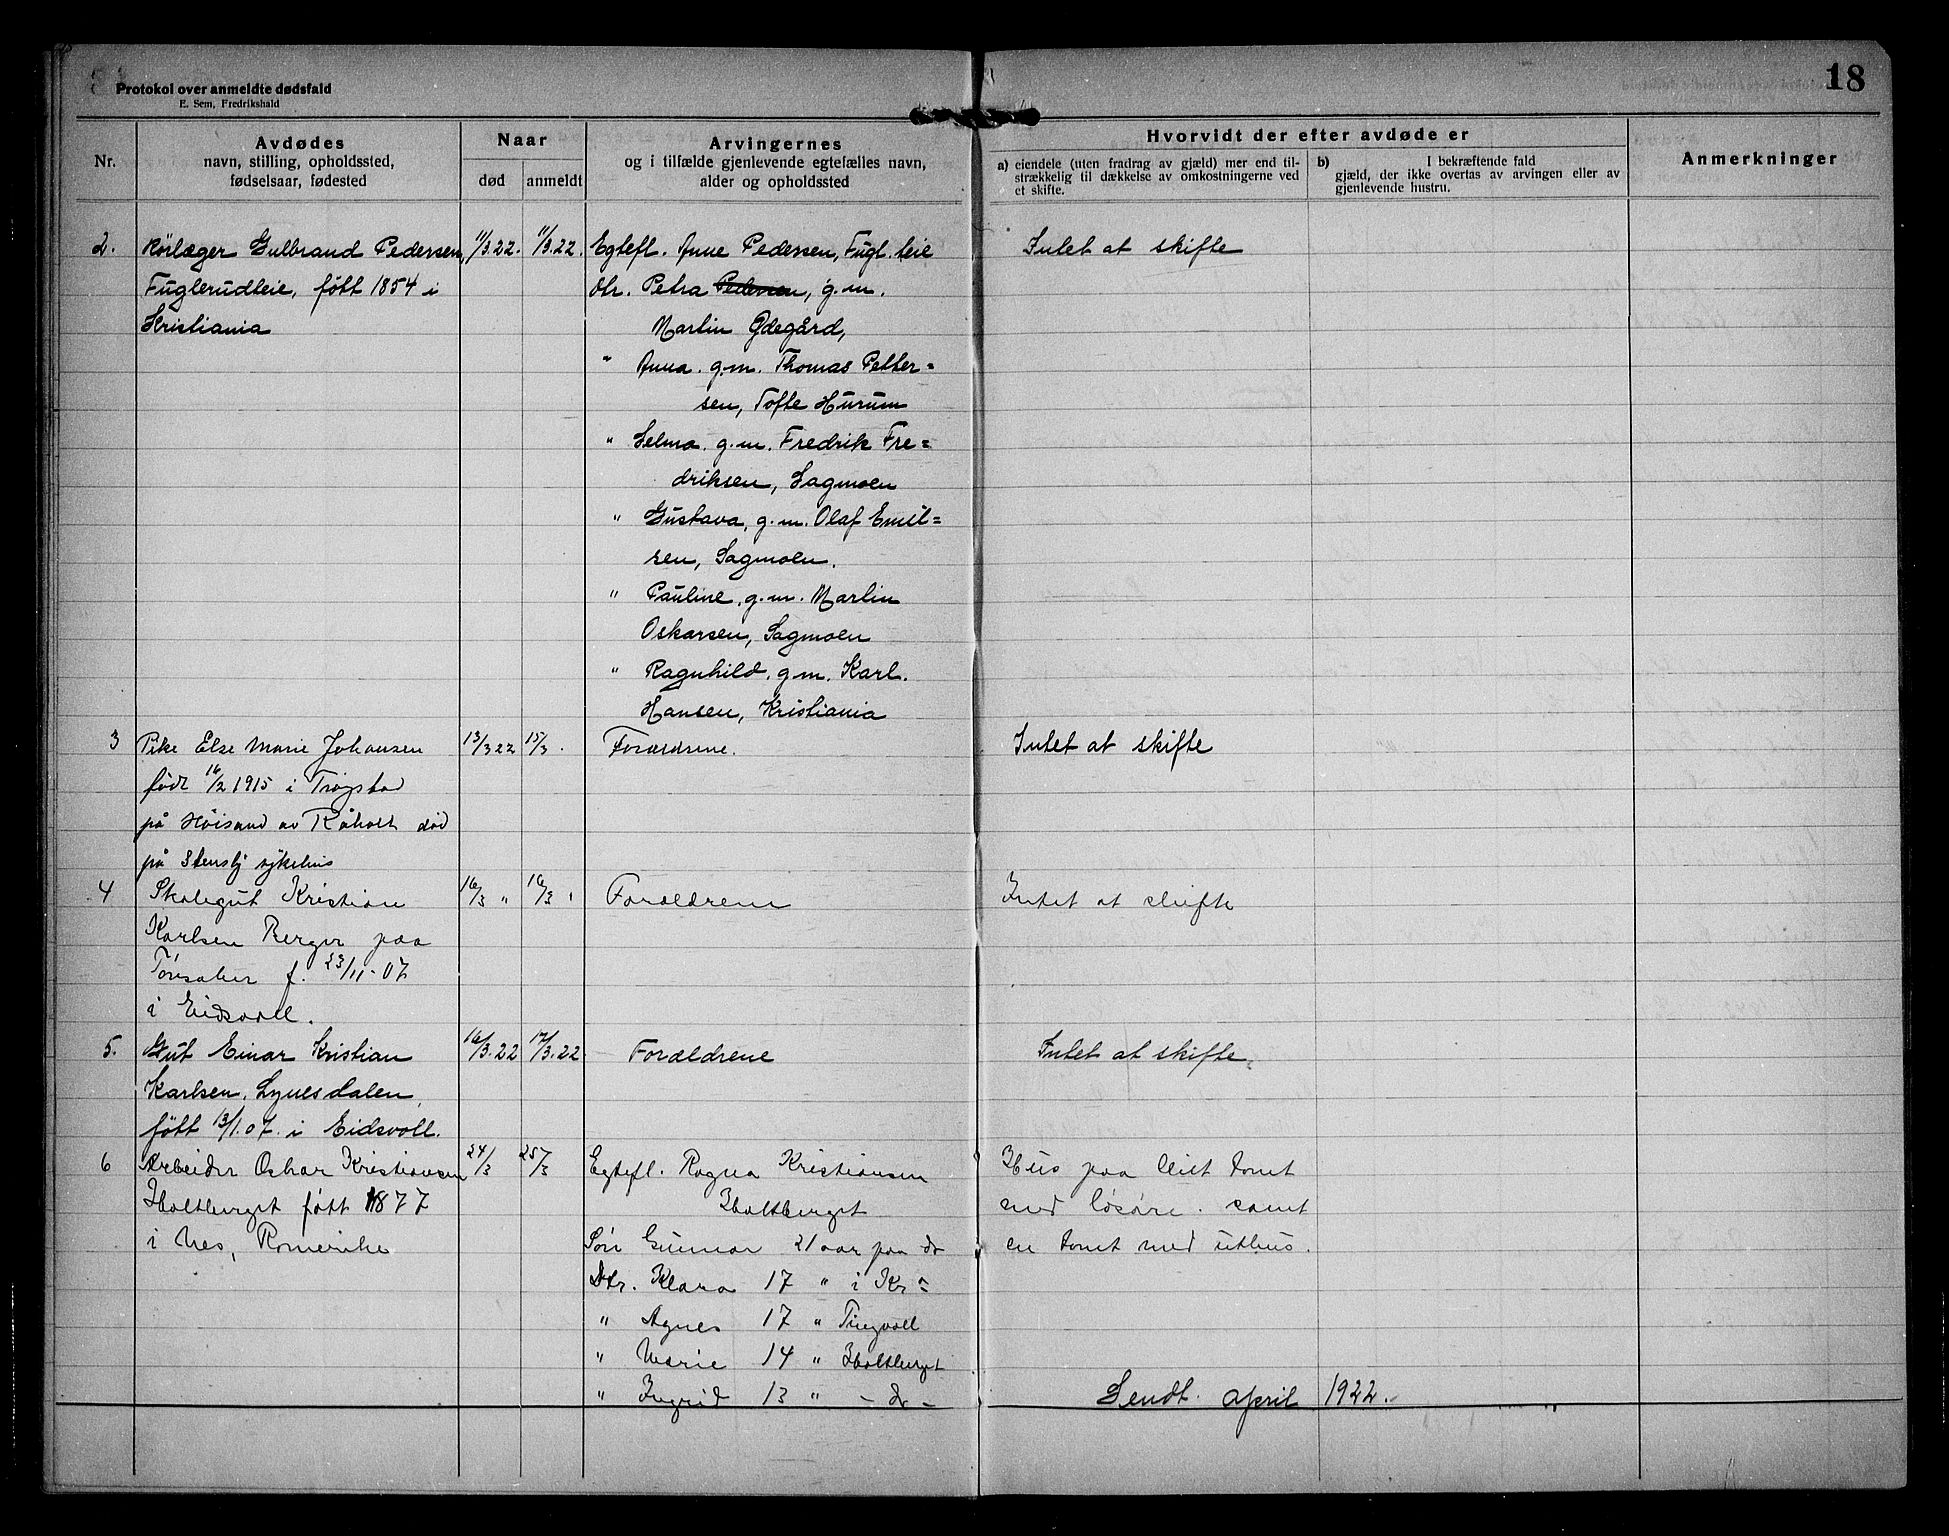 18
Protokol over anmeldte dødsfald
E. Sem, Fredrikshald
Nr.
Avdødes
navn, stilling, opholdssted,
fødselsaar, fødested
Naar
død
anmeldt
Arvingernes
og i tilfælde gjenlevende egtefælles navn,
alder og opholdssted
Hvorvidt der efter avdøde er
a) eiendele (uten fradrag av gjæld) mer end til-
strækkelig til dækkelse av omkostningerne ved
et skifte.
b) I bekræftende fald
gjæld, der ikke overtas av arvingen eller av
gjenlevende hustru.
Anmerkninger
2. Rörlæger Gulbrand Pedersen, 11/3.22. 11/3.22. Egtefl. Anne Pedersen, Fugl.teie Intet at skifte
Fuglerudteie, född 1854 i Dtr. Petra Pedersen, g.m.
Kristiania Martin Ødegård,
" Anna. g.m. Thomas Petter=
sen, Tofte Hurum
" Selma. g.m. Fredrik Fre=
driksen, Sagmoen
" Gustava, g.m. Olaf Emil=
sen, Sagmoen.
" Pauline, g.m. Martin
Oskarsen, Sagmoen
" Ragnhild. g.m. Karl.
Hansen, Kristiania
3 Pike Else Marie Johansen 13/3 22 15/3. Forældrene. Intet at skifte
född 16/2 1915 i Trøgstad
på Høisand av Råholt död
på Stensby sykehus
4 Skolegut Kristian 16/3 " 16/3 " Forældrene Intet at skifte
Karlsen Berger paa
f. 23/11-07
i Eidsvoll.
5. Gut Einar Kristian 16/3.22 17/3.22 Forældrene Intet at skifte.
Karlsen, Lynesdalen,
född 13/1.07. i Eidsvoll.
6 Arbeider Oskar Kristiansen 24/3 25/3 Egtefl. Ragna Kristiansen Hus paa leiet tomt
Holtberget född 1877 Holtberget med løsøre. samt
i Nes, Romerike Søn Gunnar 21 aar paa do en tomt med uthus.
Dtr. Klara 17 " i Kr=
" Agnes 17 " Tingvoll
" Marie 14 " Holtberget
" Ingrid 13 " - do -
Sendt. april 1922.